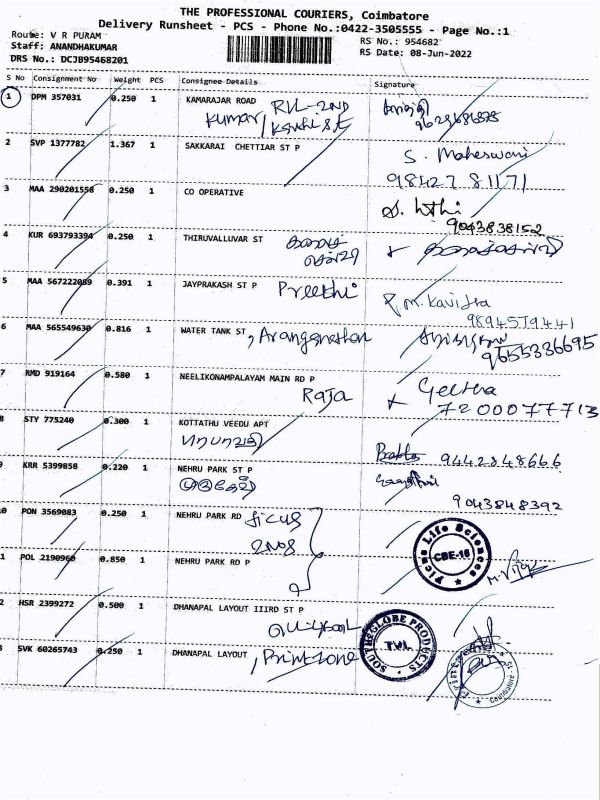 THE PROFESSIONAL COURIERS, Coimbatore
Delivery Runsheet - PCS - Phone No.:0422-3505555 - Page No.:1
Route: V R PURAM
RS No.: 954682
Staff: ANANDHAKUMAR
RS Date: 08-Jun-2022
DRS No.: DCJB95468201
S No Consignment No Weight PCS Consignee Details Signature
1 DPM 357031 0.250 1 KAMARAJAR ROAD
Kumar
2 SVP 1377782 1.367 1 SAKKARAI CHETTIAR ST P S. Maheswari
98427 81171
3 MAA 290201558 0.250 1 CO OPERATIVE
9043838152
4 KUR 693793394 0.250 1 THIRUVALLUVAR ST
5 MAA 567222089 0.391 1 JAYPRAKASH ST P Preethi P.M. Kavitha
9894579441
6 MAA 565549630 0.816 1 WATER TANK ST , Aranganathan
9655336695
7 RMD 919164 0.580 1 NEELIKONAMPALAYAM MAIN RD P Geetha
RAJA 7200077713
8 STY 775240 0.300 1 KOTTATHU VEEDU APT
9442848666
9 KRR 5399858 0.220 1 NEHRU PARK ST P
9043848392
0 PON 3569083 0.250 1 NEHRU PARK RD
2NOS
Picus Life Sciences
CBE-15
1 POL 2190960 0.850 1 NEHRU PARK RD P
M. Vijay
2 HSR 2399272 0.500 1 DHANAPAL LAYOUT IIIRD ST P
SOUTHGLOBE PRODUCTS
TVL
3 SVK 60265743 0.250 1 DHANAPAL LAYOUT , Printzone
Coimbatore